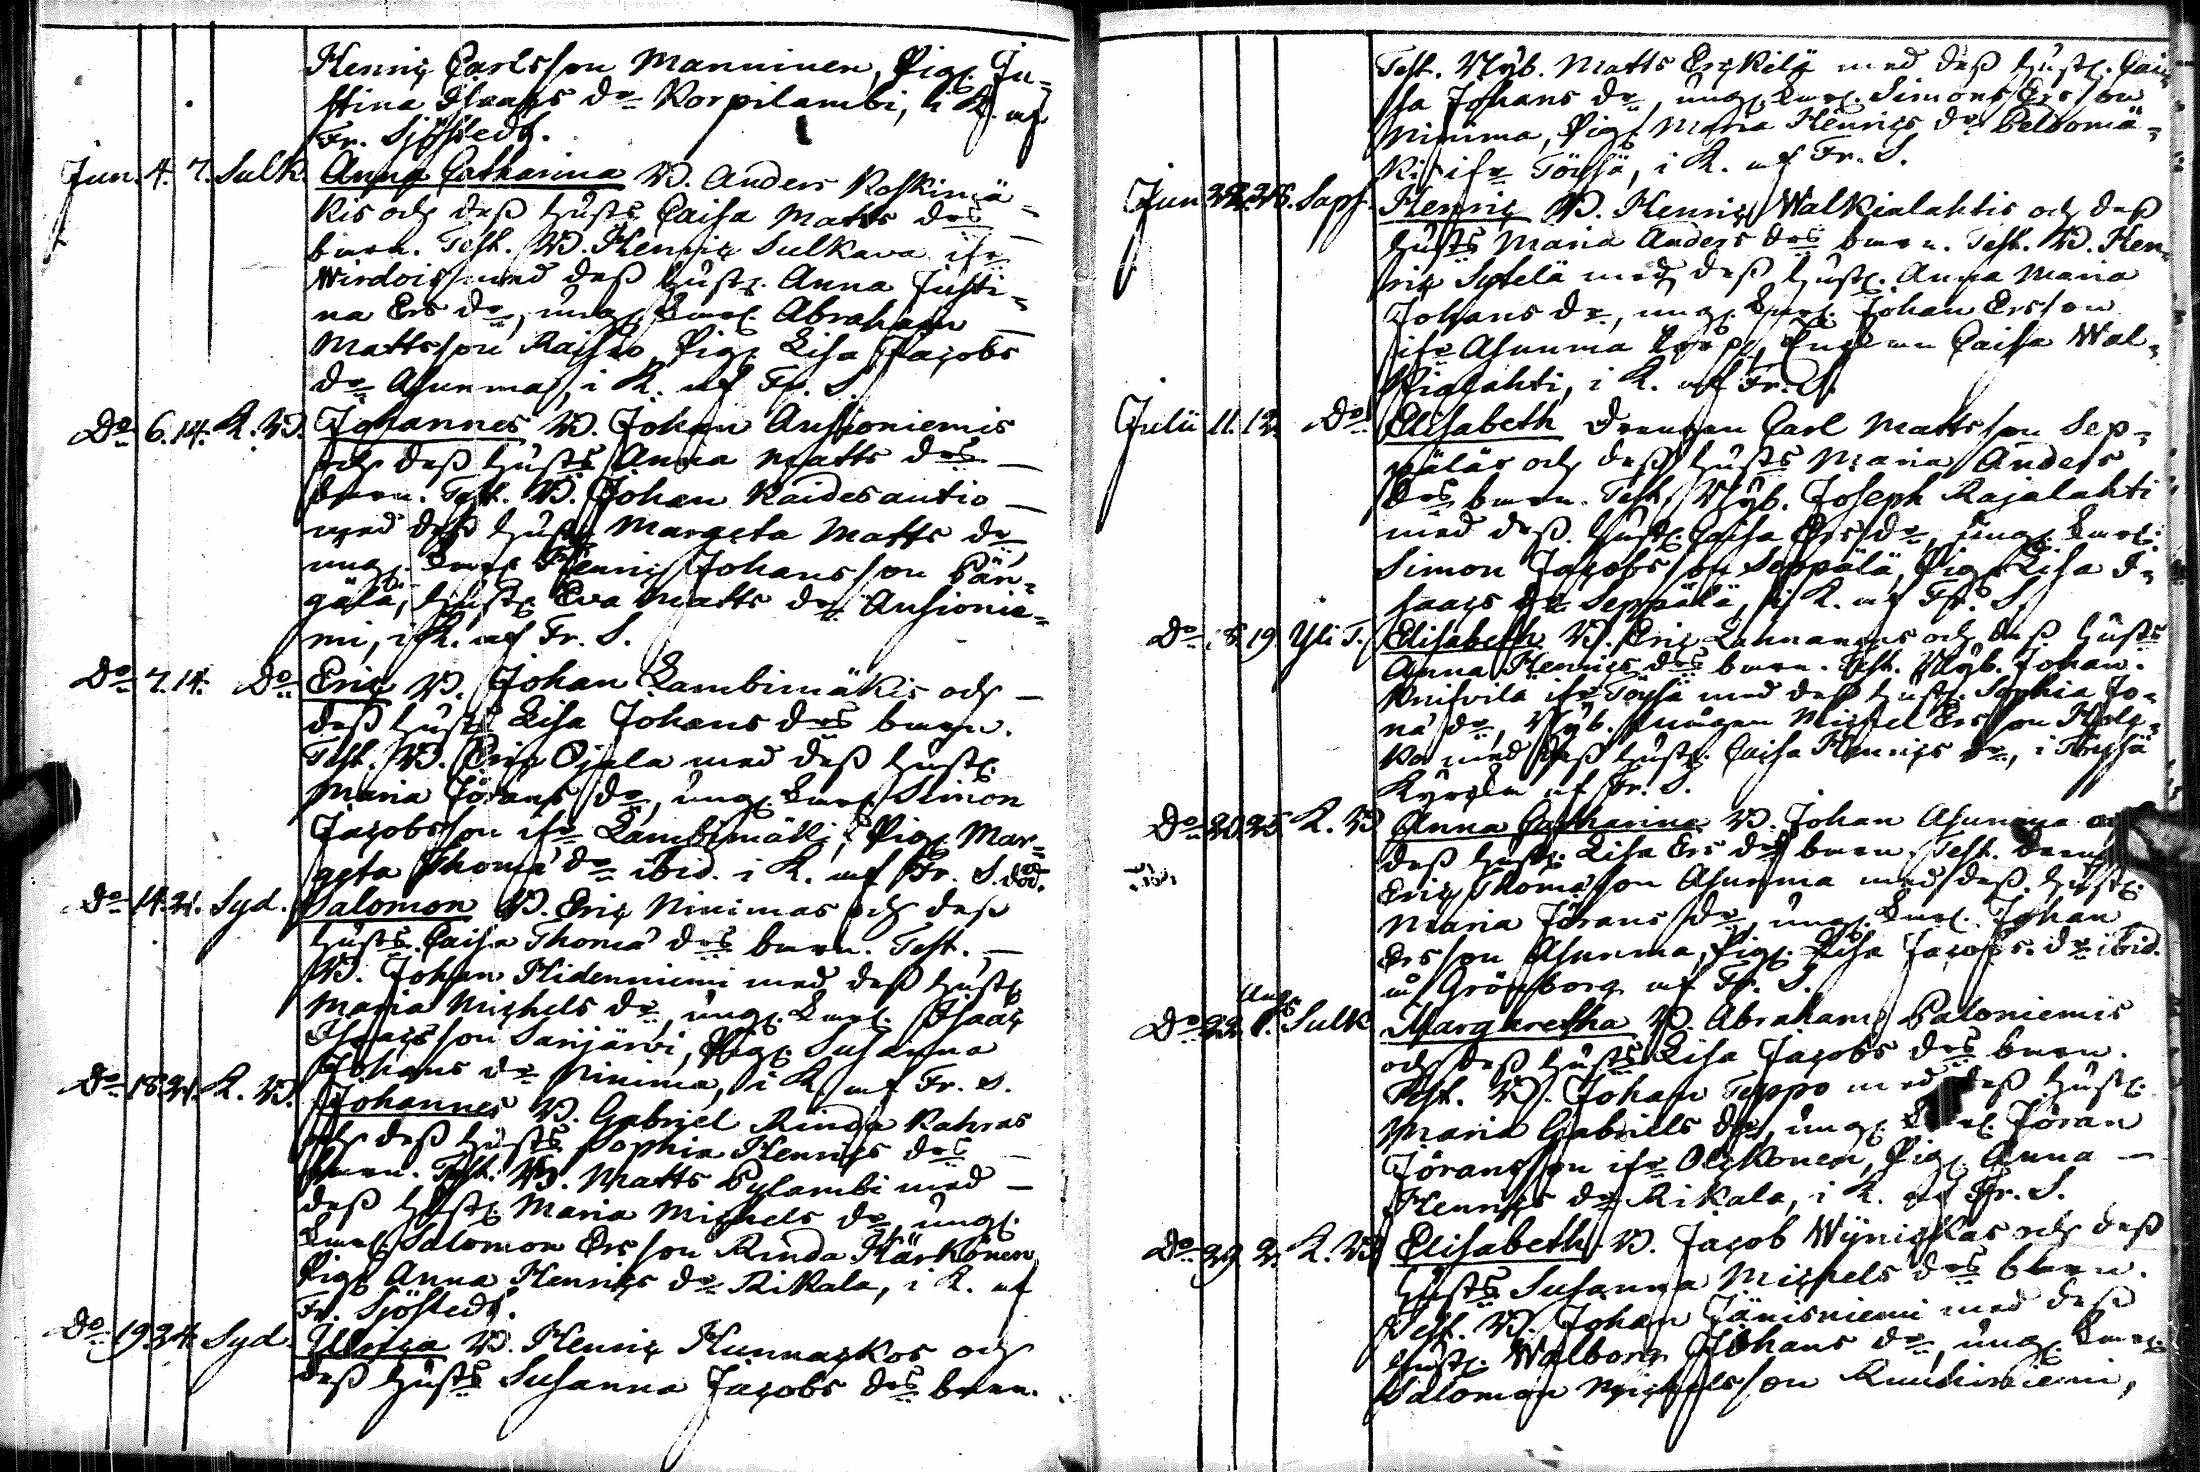 Henric Carlsson Manninen, Pig. Ju-
stina Isaacs dr Korpilambi, i K. af
Fr. Sjöstedt.
Jun. 4. 7. Sulk. Anna Catharina B. Anders Koskimä-
kis och dess hustrs Caisa Matts drs
barn. Test. B. Henric Sulkava ifr
Wirdois med dess hustr. Anna Justi-
na Ers dr, ung. Karl. Abraham
Mattsson Raisio, Pig. Lisa Jacobs
dr Asunma, i K. af Fr. S.
Do 6. 14. K. B. Johannes B. Johan Ansioniemis
och dess hustrs Anna Matts drs
barn. Test. B. Johan Kaidesautio
med dess hustr. Margeta Matts dr
ung. Karl. Henric Johansson Pän-
gälä, Hustr. Eva Matts dr Ansionie-
mi, i K. af Fr. S.
Do 7. 14. Do Eric B. Johan Lambimäkis och
dess hustrs Lisa Johans drs barn.
Test. B. Eric Ojala med dess hustr.
Maria Jörans dr, ung. Karl. Simon
Jacobsson ifr Lambimäki, Pig. Mar-
geta Thoma dr ibid. i K. af Fr. S. död.
Do 14. 21. Syd. Salomon B. Eric Ninimas och dess
hustrs Caisa Thoma drs barn. Test.
B. Johan Hidenniemi med dess hustr.
Maria Michels dr, ung. Karl. Isaac
Isaacsson Sanjärvi, Pig. Susanna
Johans dr Ninima, i K. af Fr. S.
Do 18. 21. K. B. Johannes B. Gabriel Rinda Kahras
och dess hustrs Sophia Henrics drs
barn. Test. B. Matts Pylambi med
dess hustr. Maria Michels dr, ung.
Karl. Salomon Ersson Rinda Härkönen
Pig. Anna Henrics dr Rikala, i K. af
Fr. Sjöstedt.
Do 19. 24. Syd. Ulrica B. Henric Hunnackos och
dess hustrs Susanna Jacobs drs barn.
Test. Nyb. Matts Erckilä med dess hustr. Cai-
sa Johans dr, ung. Karl. Simon Ersson
Ninima, Pig. Maria Henrics dr Peltomä-
ki ifr Töysä, i K. af Fr. S.
Jun 22. 25. Saps. Henric B. Henric Walkialahtis och dess
hustrs Maria Anders drs barn. Test. B. Hen-
ric Sytelä med dess hustr. Anna Maria
Johans dr, ung. Karl. Johan Ersson
ifr Asunma, Caisa Wal-
kialahti, i K. af Fr. S.
Julii 11. 12. Do Elisabeth Drengen Carl Mattsson Sep-
päläs och dess hustrs Maria Anders
drs barn. Test. Nyb. Joseph Rajalahti
med dess hustr. Caisa Ers dr, ung. Karl.
Simon Jacobsson Seppälä, Pig. Lisa I-
saacs dr Seppälä, i K. af Fr. S.
Do 18. 19. Yli T. Elisabeth B. Eric Lahnanens och dess hustrs
Anna Henrics drs barn. Test. Nyb. Johan
ifr Töysä med dess hustr. Sophia Jo-
na dr, Nyb. Michel Ersson Holc-
ko med dess hustr. Caisa Henrics dr, i Töysä
Kyrcka af Fr. S.
Do 20. 25. K. B. Anna Catharina B. Johan Asunma och
dess hustr. Lisa Ers drs barn. Test. Dreng.
Eric Thomasson Asunma med dess hustr.
Maria Jörans dr, ung. Karl. Johan
Ersson Asunma, Pig. Lisa Jacobs dr ibid.
af Fr. S.
Augs
Do 22. 1. Sulk. Margaretha B. Abraham Paloniemis
och dess hustrs Lisa Jacobs drs barn.
Test. B. Johan Teppo med dess hustr.
Maria Gabriels dr, ung. Karl. Jöran
Jöransson ifr Ollkonen, Pig. Anna
Henrics dr Rikala, i K. af Fr. S.
Do 29. 2. K. B. Elisabeth B. Jacob Wynickas och dess
hustrs Susanna Michels drs barn.
Test. B. Johan Jänisniemi med dess
hustr. Walborg Johans dr, ung. Karl.
Salomon Michelsson